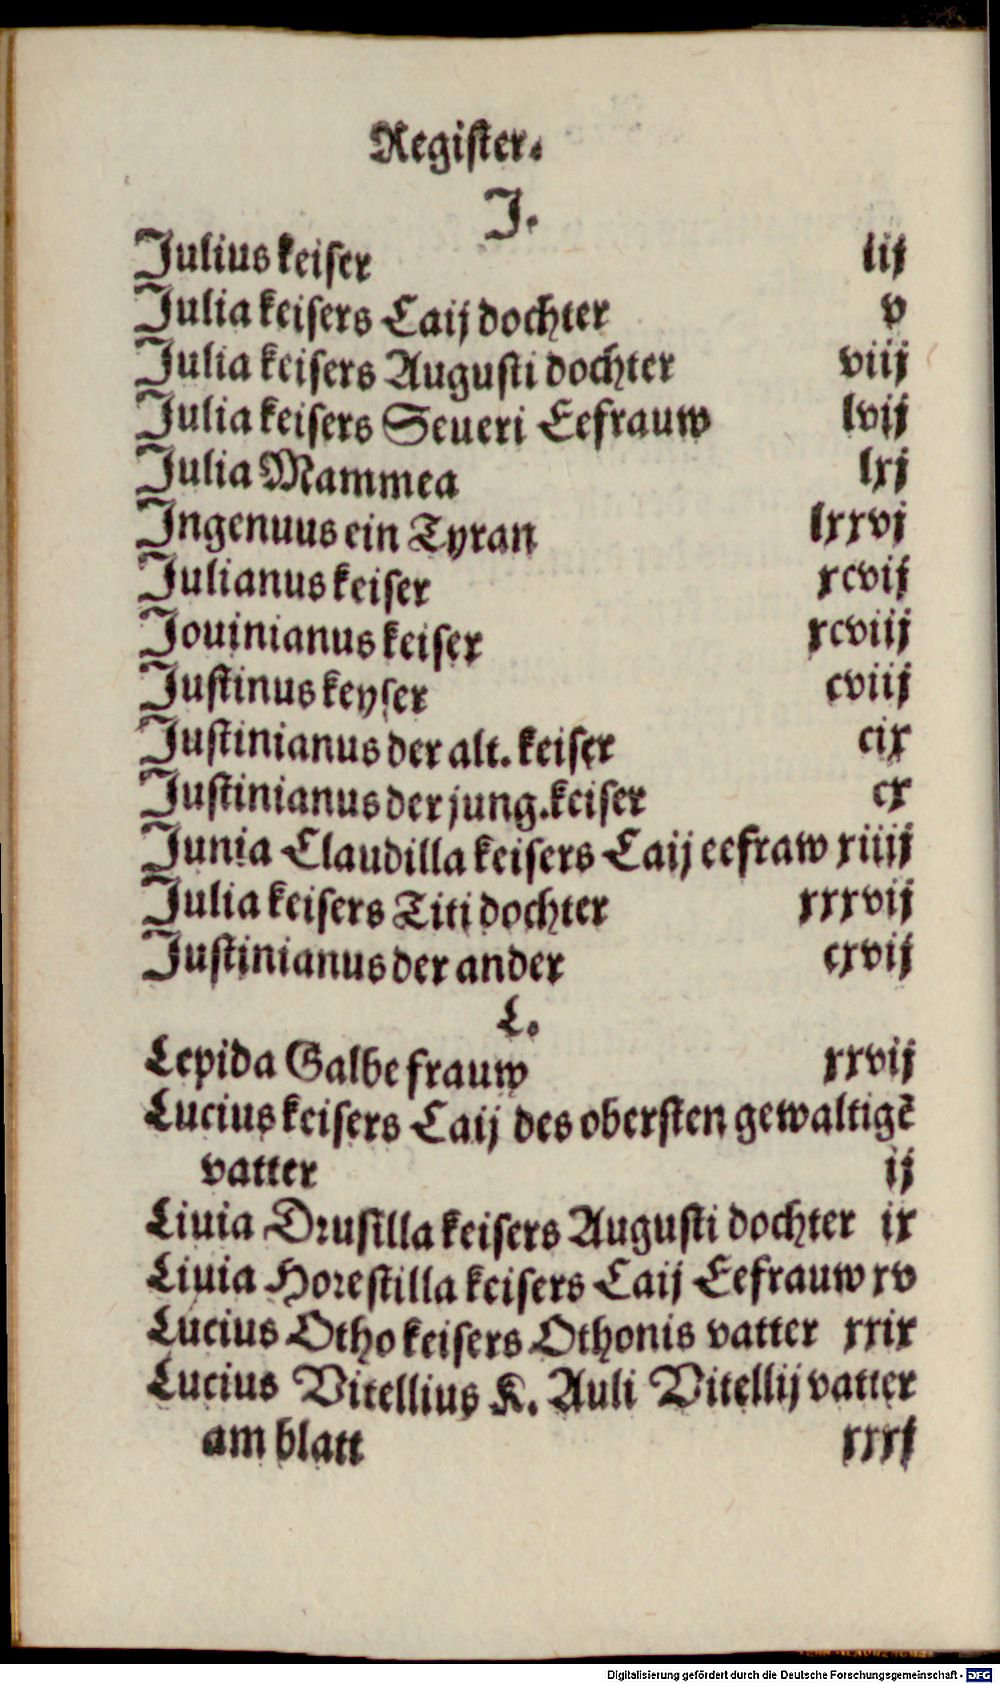 Register.
J.
Julius keiser lij
Julia keisers Caij dochter v
Julia keisers Augusti dochter viij
Julia keisers Seueri Eefrauw lvij
Julia Mammea lxj
Ingenuus ein Tyran lxxvj
Julianus keiser xcvij
Jouinianus keiser xcviij
Justinus keyser cviij
Justinianus der alt. keiser cix
Justinianus der jung. keiser cx
Junia Claudilla keisers Caij eefraw xiiij
Julia keisers Titi dochter xxxvij
Justinianus der ander cxvij
L.
Lepida Galbe frauw xxvij
Lucius keisers Caij des obersten gewaltigẽ
vatter ij
Liuia Drusilla keisers Augusti dochter ix
Liuia Horestilla keisers Caij Eefrauw xv
Lucius Otho keisers Othonis vatter xxix
Lucius Vitellius K. Auli Vitellij vatter
am blatt xxxj
Digitalisierung gefördert durch die Deutsche Forschungsgemeinschaft - DFG